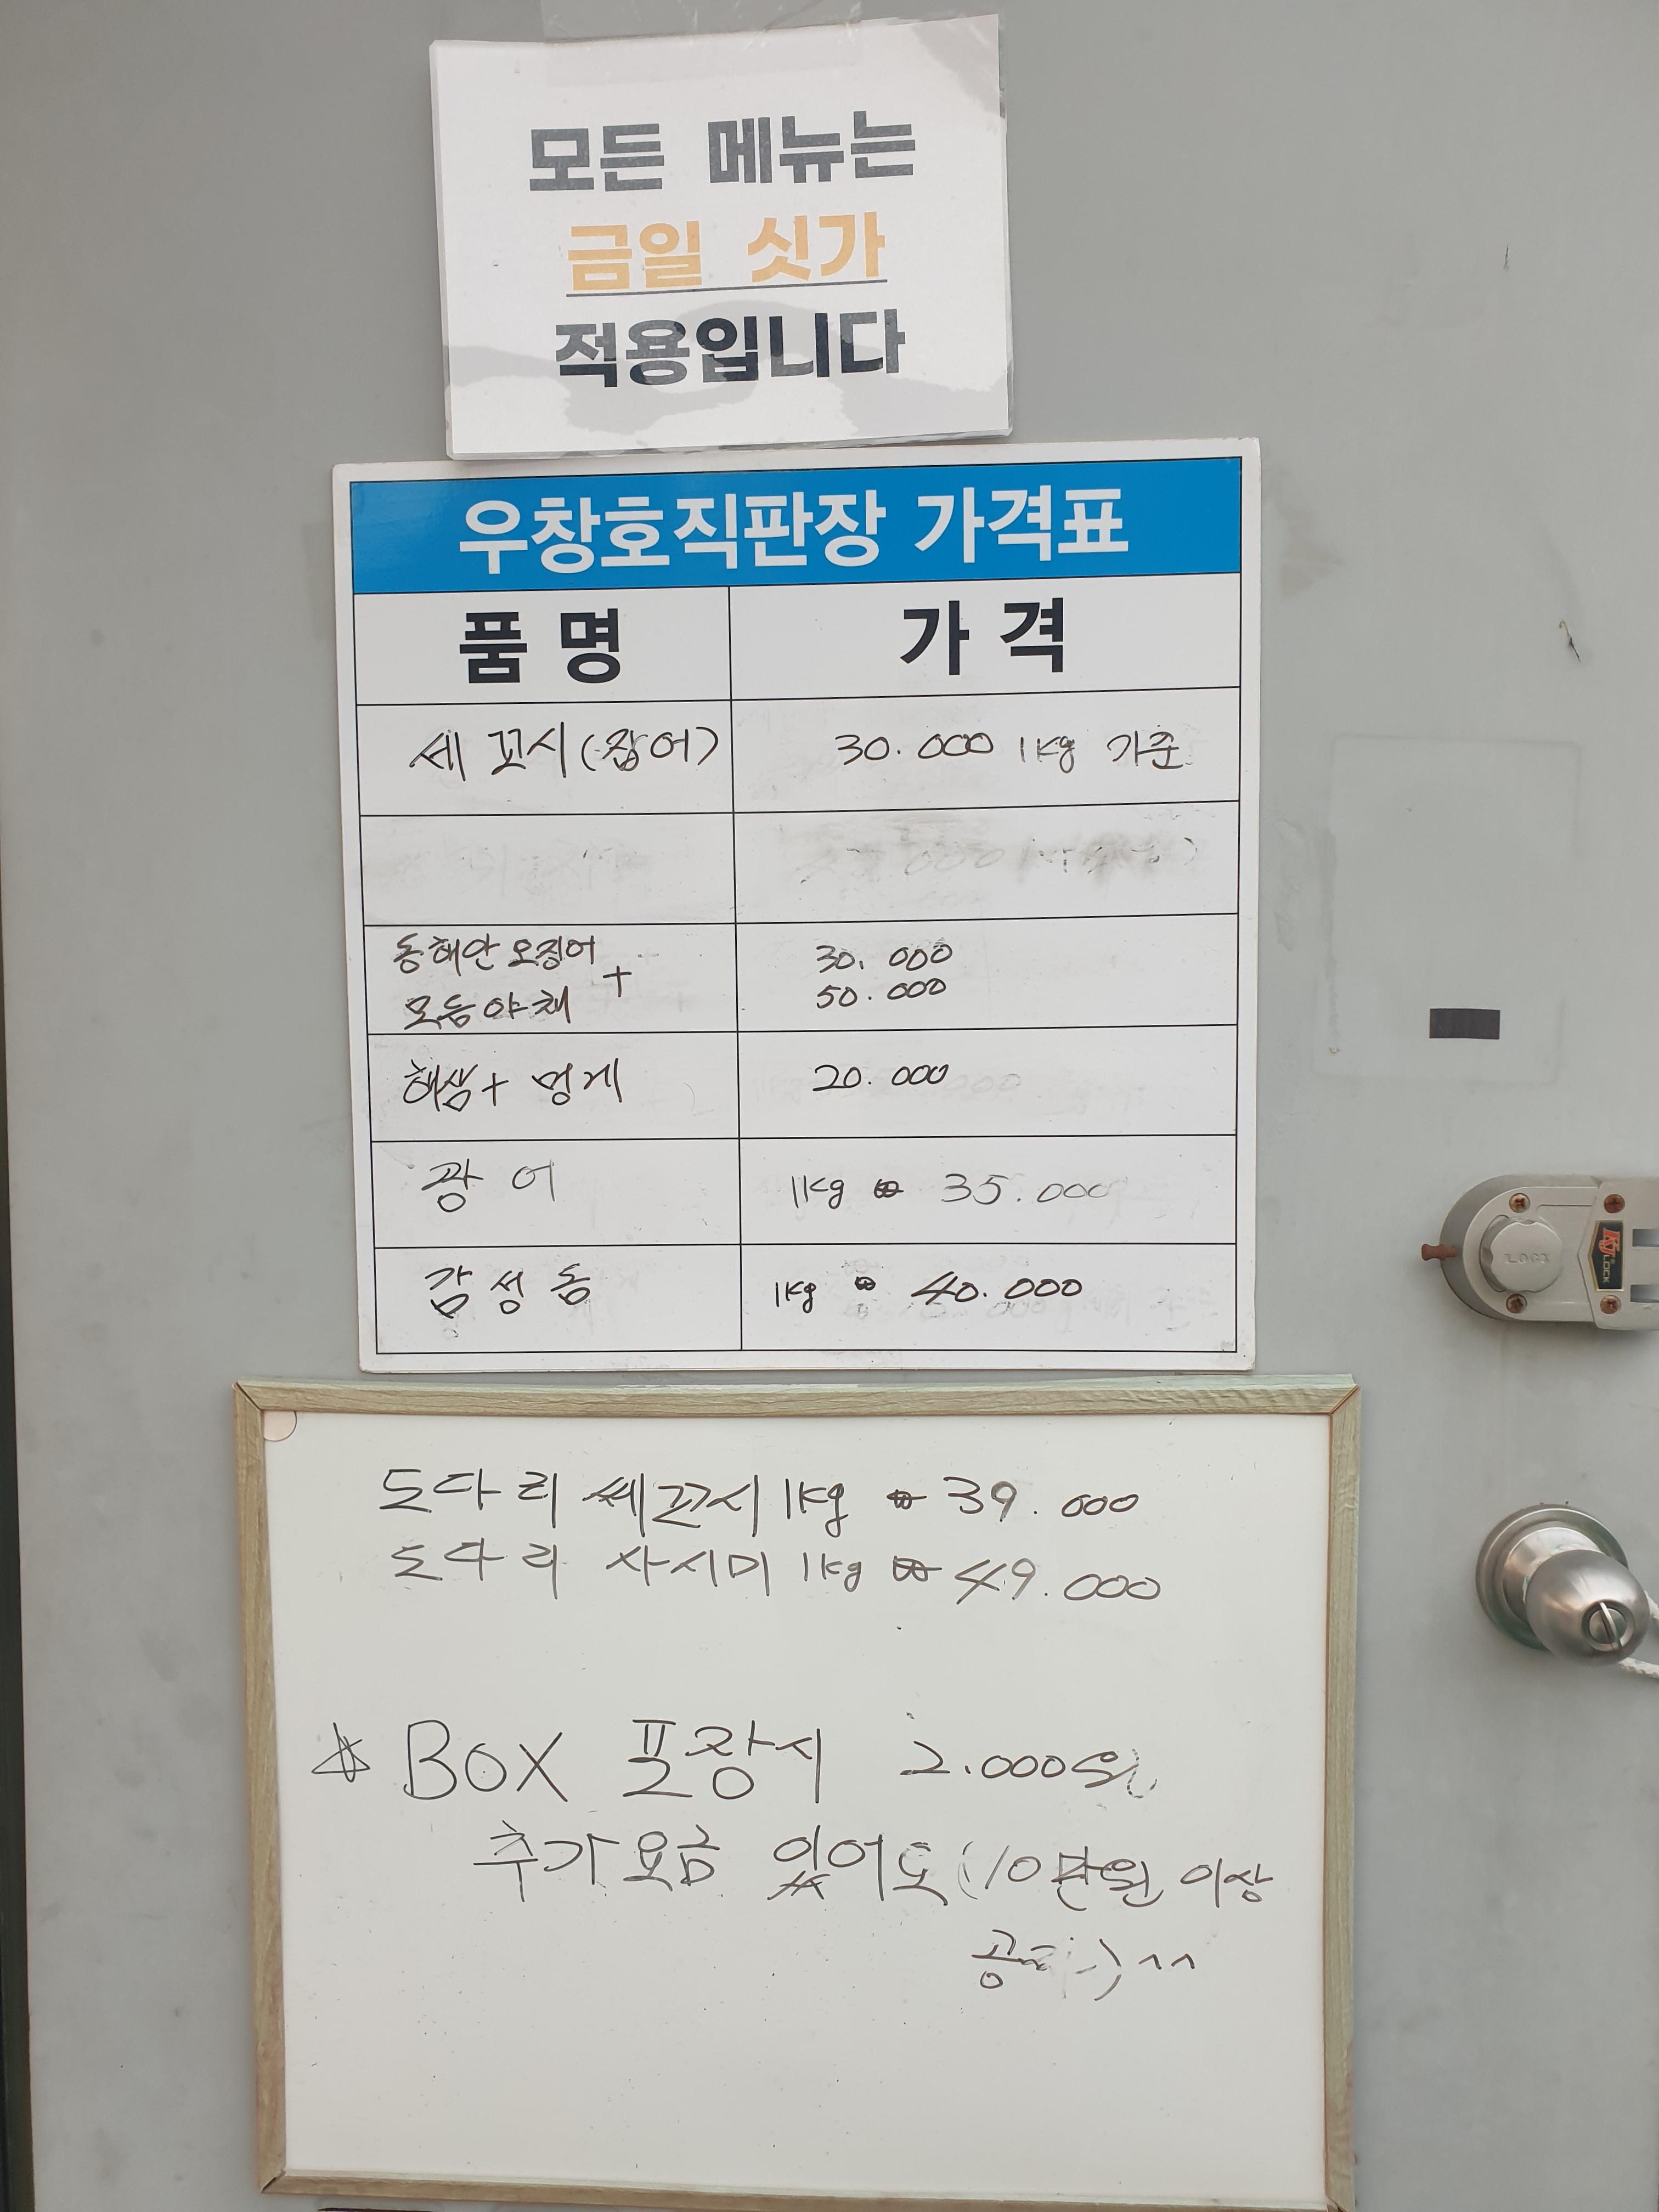 모든 메뉴는
금일 싯가
적용입니다
우창호직판장 가격표
품명 가격
세꼬시(잡어) 30.000 1kg 기준
동해안 오징어 + 30.000
모듬야채 50.000
해삼 + 멍게 20.000
광어 1kg ₩ 35.000
감성돔 1kg ₩ 40.000
도다리 쎄꼬시 1kg ₩ 39.000
도다리 사시미 1kg ₩ 49.000
☆ BOX 포장시 2.000원
추가요금 있어요 (10만원 이상
^^
KJ LOCK
LOCK